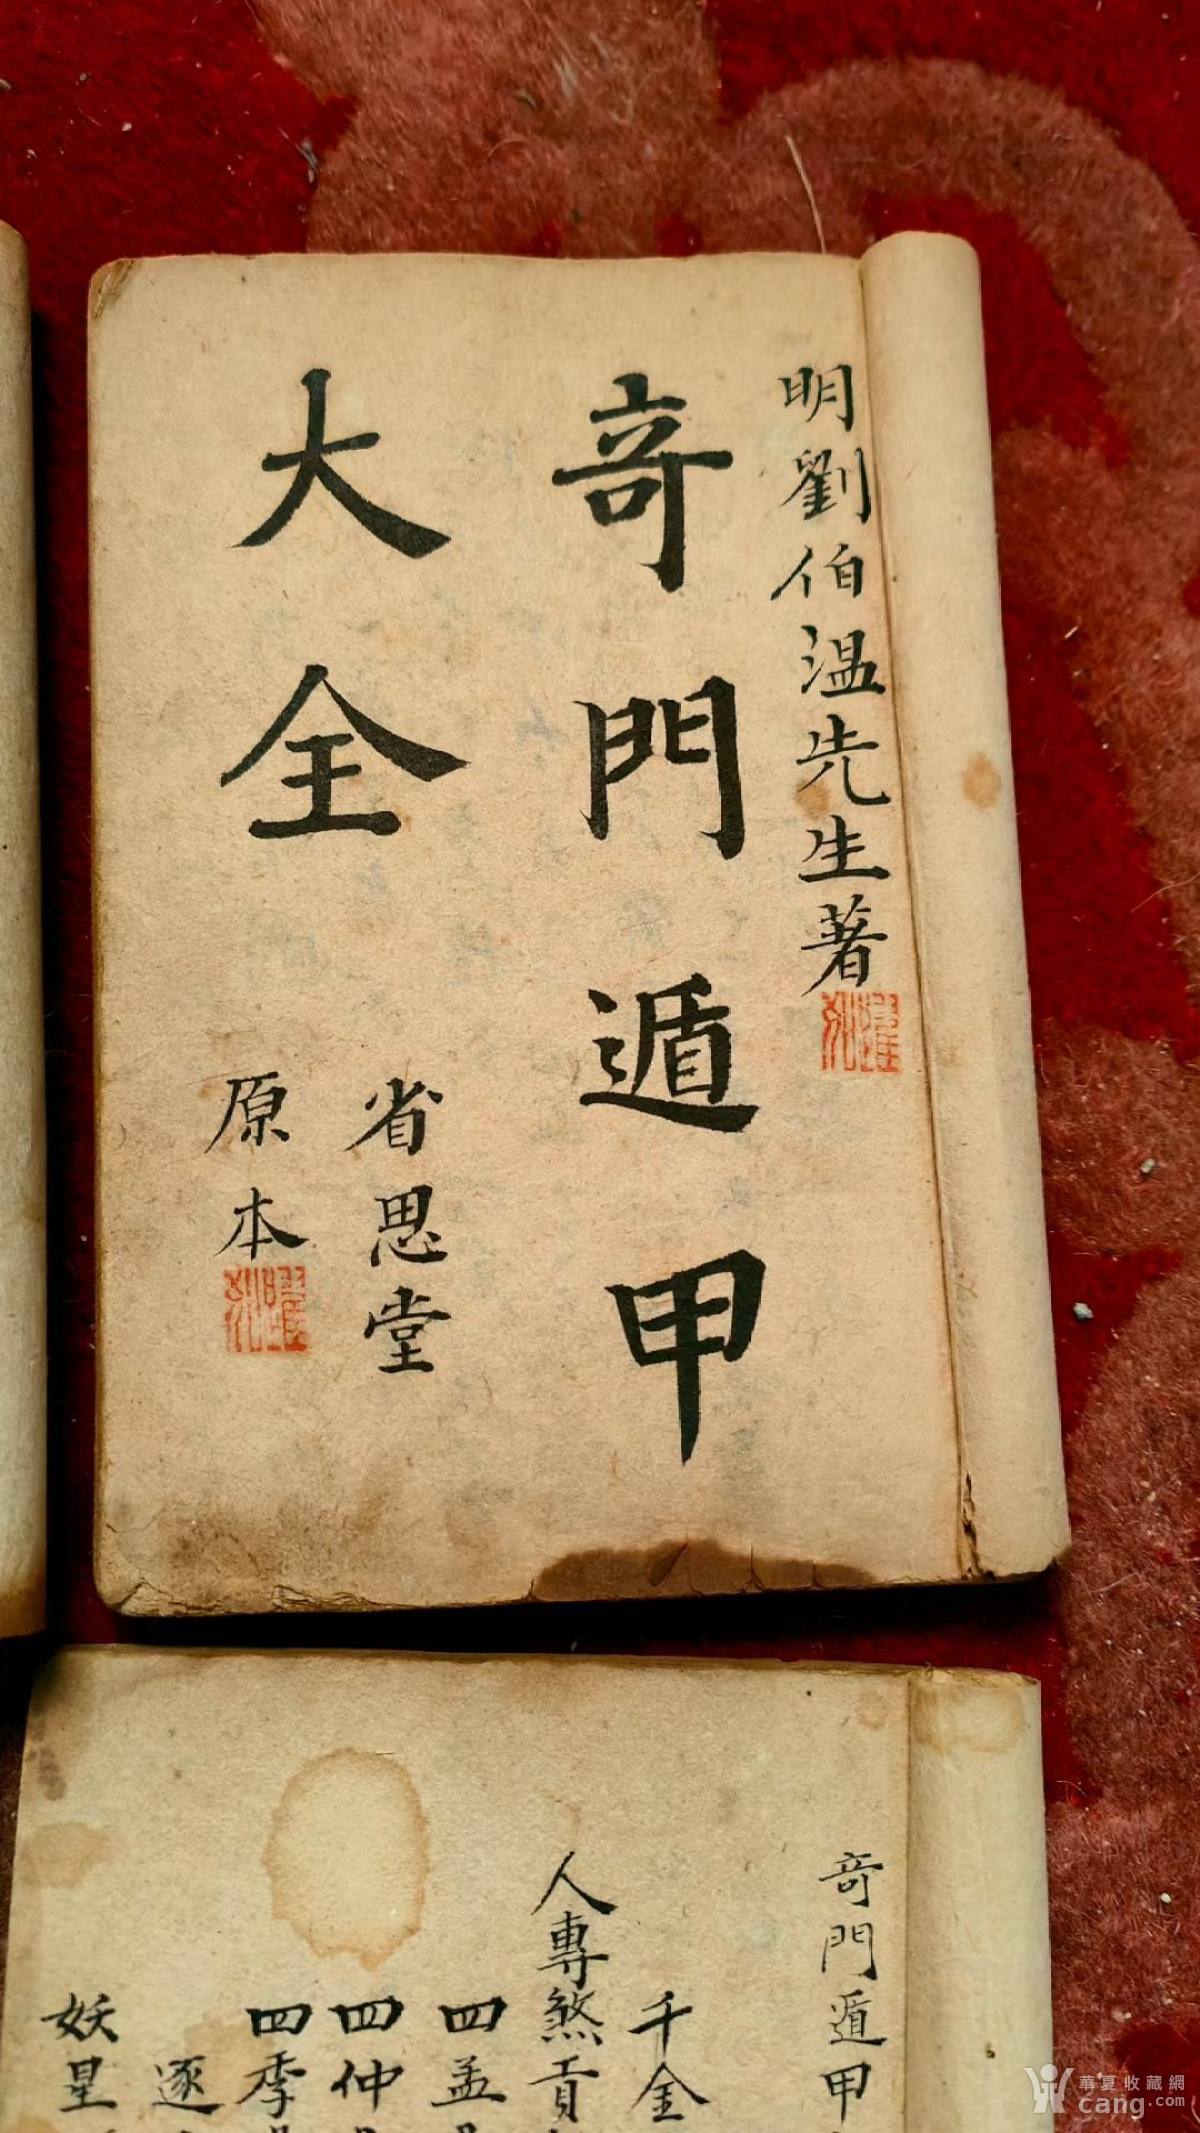 明劉伯溫先生著
竒門遁甲
大全
省思堂
原本
竒門遁甲
千金
人專煞貢
四孟
四仲
四季
逐
妖星
華夏收藏網
cang.com